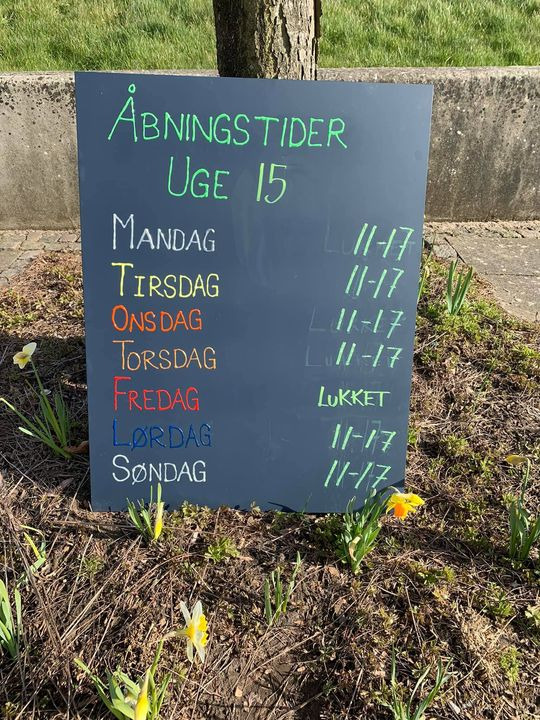 ÅBNINGSTIDER
UGE 15
MANDAG 11-17
TIRSDAG 11-17
ONSDAG 11-17
TORSDAG 11-17
FREDAG LUKKET
LØRDAG 11-17
SØNDAG 11-17